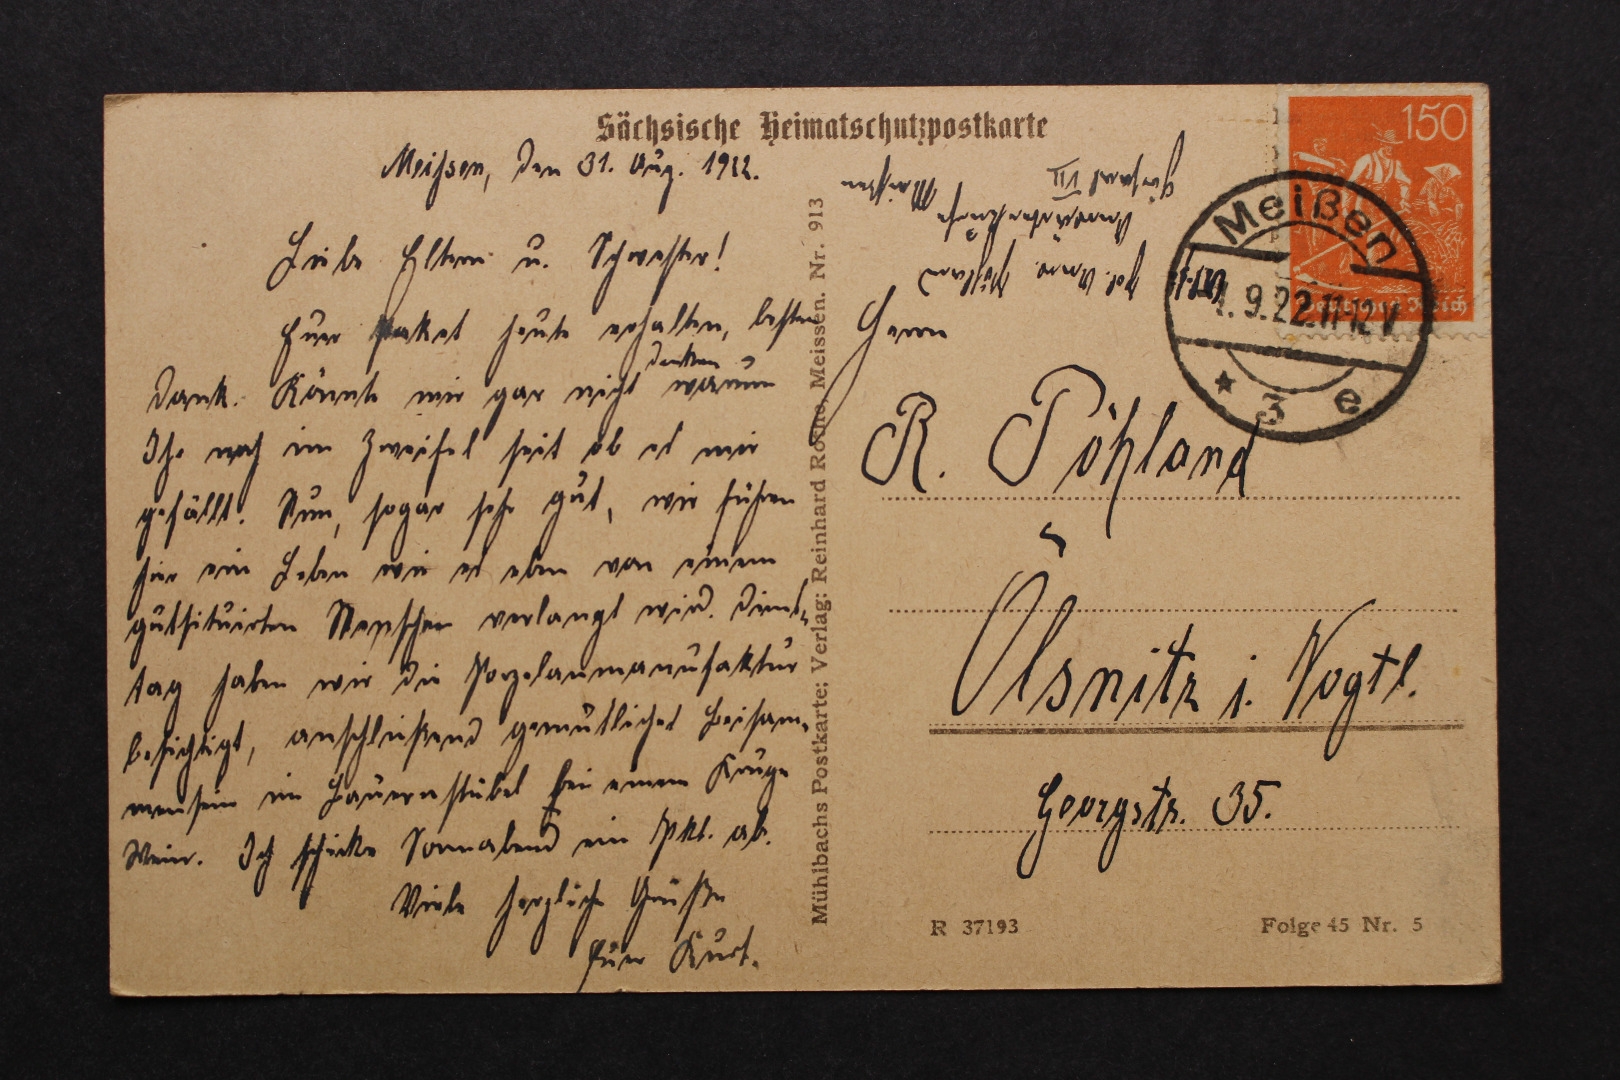 Sächsische Heimatschutzpostkarte
Meissen, den 31. Aug. 1922.
Liebe Eltern u. Schwester!
Euer Paket heute erhalten, besten
Dank. Könnte mir gar nicht denken warum
Ihr noch im Zweifel seit ob es mir
gefällt. Nun, sogar sehr gut, wir führen
hier ein Leben wie es eben von einem
gutsituirten Menschen verlangt wird. Diens-
tag haben wir die Porzelanmanufaktur
besichtigt, anschließend gemütliches Beisam-
mensein im Bauernstübel bei einem Kruge
Wein. Ich schicke Sonnabend ein Pkt. ab.
Viele herzliche Grüße
Euer Kurt.
Mühlbachs Postkarte; Verlag: Reinhard Rothe, Meissen. Nr. 913
Pöhland
Meissen
150
Deutsches Reich
Meißen
1.9.22.11-12V
* 3 e
Herrn
R. Pöhland
Ölsnitz i. Vogtl.
Georgstr. 35.
R 37193
Folge 45 Nr. 5